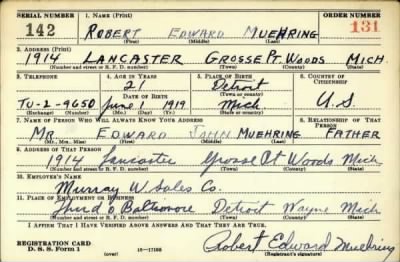 SERIAL NUMBER 1. NAME (Print) ORDER NUMBER
142 ROBERT EDWARD MUEHRING 131
(First) (Middle) (Last)
2. ADDRESS (Print)
1914 LANCASTER GROSSE PT. WOODS MICH.
(Number and street or R. F. D. number) (Town) (County) (State)
3. TELEPHONE 4. AGE IN YEARS 5. PLACE OF BIRTH 6. COUNTRY OF CITIZENSHIP
21 Detroit
DATE OF BIRTH (Town or county)
TU-2-9650 June 1 1919 Mich U.S.
(Exchange) (Number) (Mo.) (Day) (Yr.) (State or country)
7. NAME OF PERSON WHO WILL ALWAYS KNOW YOUR ADDRESS 8. RELATIONSHIP OF THAT PERSON
MR. EDWARD JOHN MUEHRING FATHER
(Mr., Mrs., Miss) (First) (Middle) (Last)
9. ADDRESS OF THAT PERSON
1914 Lancaster Grosse Pt Woods Mich
(Number and street or R. F. D. number) (Town) (County) (State)
10. EMPLOYER'S NAME
Murray W. Sales Co.
11. PLACE OF EMPLOYMENT OR BUSINESS
Third & Baltimore Detroit Wayne Mich
(Number and street or R. F. D. number) (Town) (County) (State)
I AFFIRM THAT I HAVE VERIFIED ABOVE ANSWERS AND THAT THEY ARE TRUE.
REGISTRATION CARD
D. S. S. Form 1 (over) Robert Edward Muehring
(Registrant's signature)